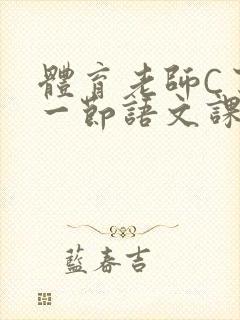 體育老師C
一節語文課
藍春吉